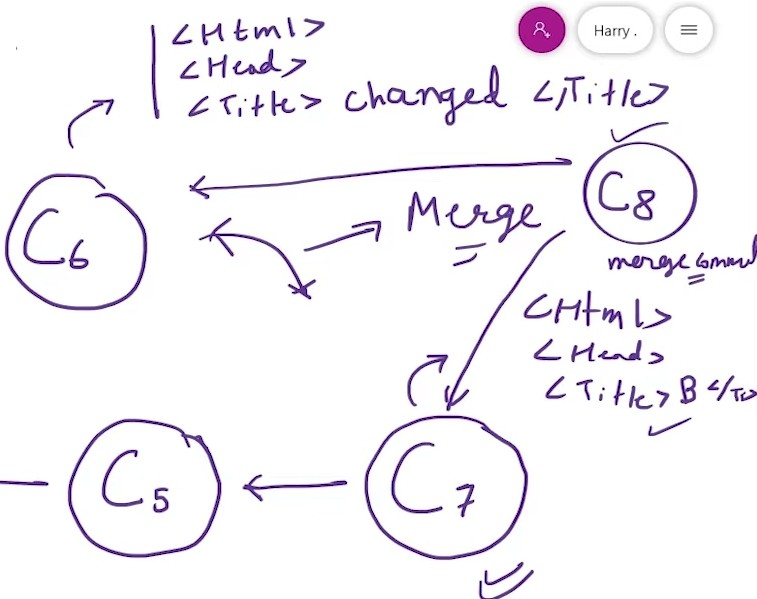 <Html>
<Head>
<Title> changed </Title>
Harry .
C6
Merge
C8
merge commit
<Html>
<Head>
<Title> B </Ti>
C5
C7